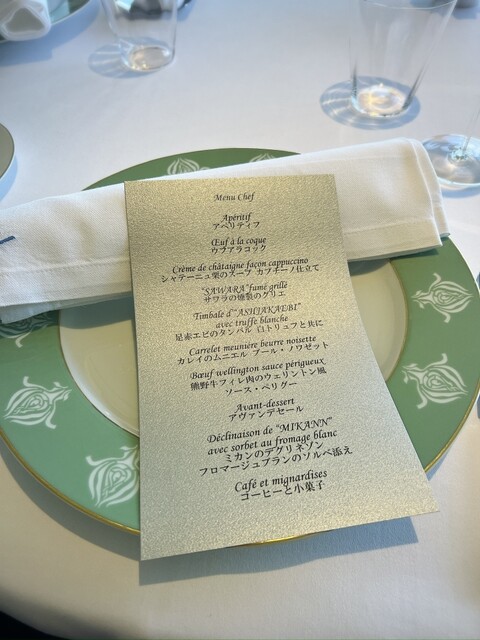 Menu Chef
Apéritif
アペリティフ
Œuf à la coque
ウフアラコック
Crème de châtaigne façon cappuccino
シャテーニュ栗のスープ カプチーノ仕立て
"SAWARA" fumé grillé
サワラの燻製のグリエ
Timbale d'"ASHIAKAEBI"
avec truffe blanche
足赤エビのタンバル 白トリュフと共に
Carrelet meunière beurre noisette
カレイのムニエル ブール・ノワゼット
Bœuf wellington sauce périgueux
熊野牛フィレ肉のウェリントン風
ソース・ペリグー
Avant-dessert
アヴァンデセール
Déclinaison de "MIKANN"
avec sorbet au fromage blanc
ミカンのデグリネゾン
フロマージュブランのソルベ添え
Café et mignardises
コーヒーと小菓子